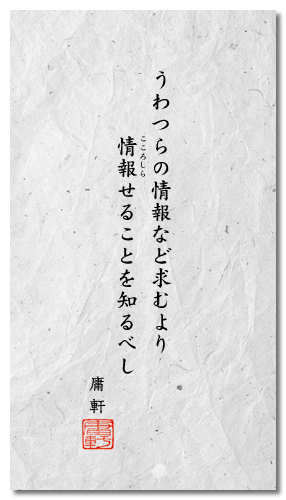 うわつらの情報など求むより
情報せることを知るべし
こころしら
庸軒
庸軒